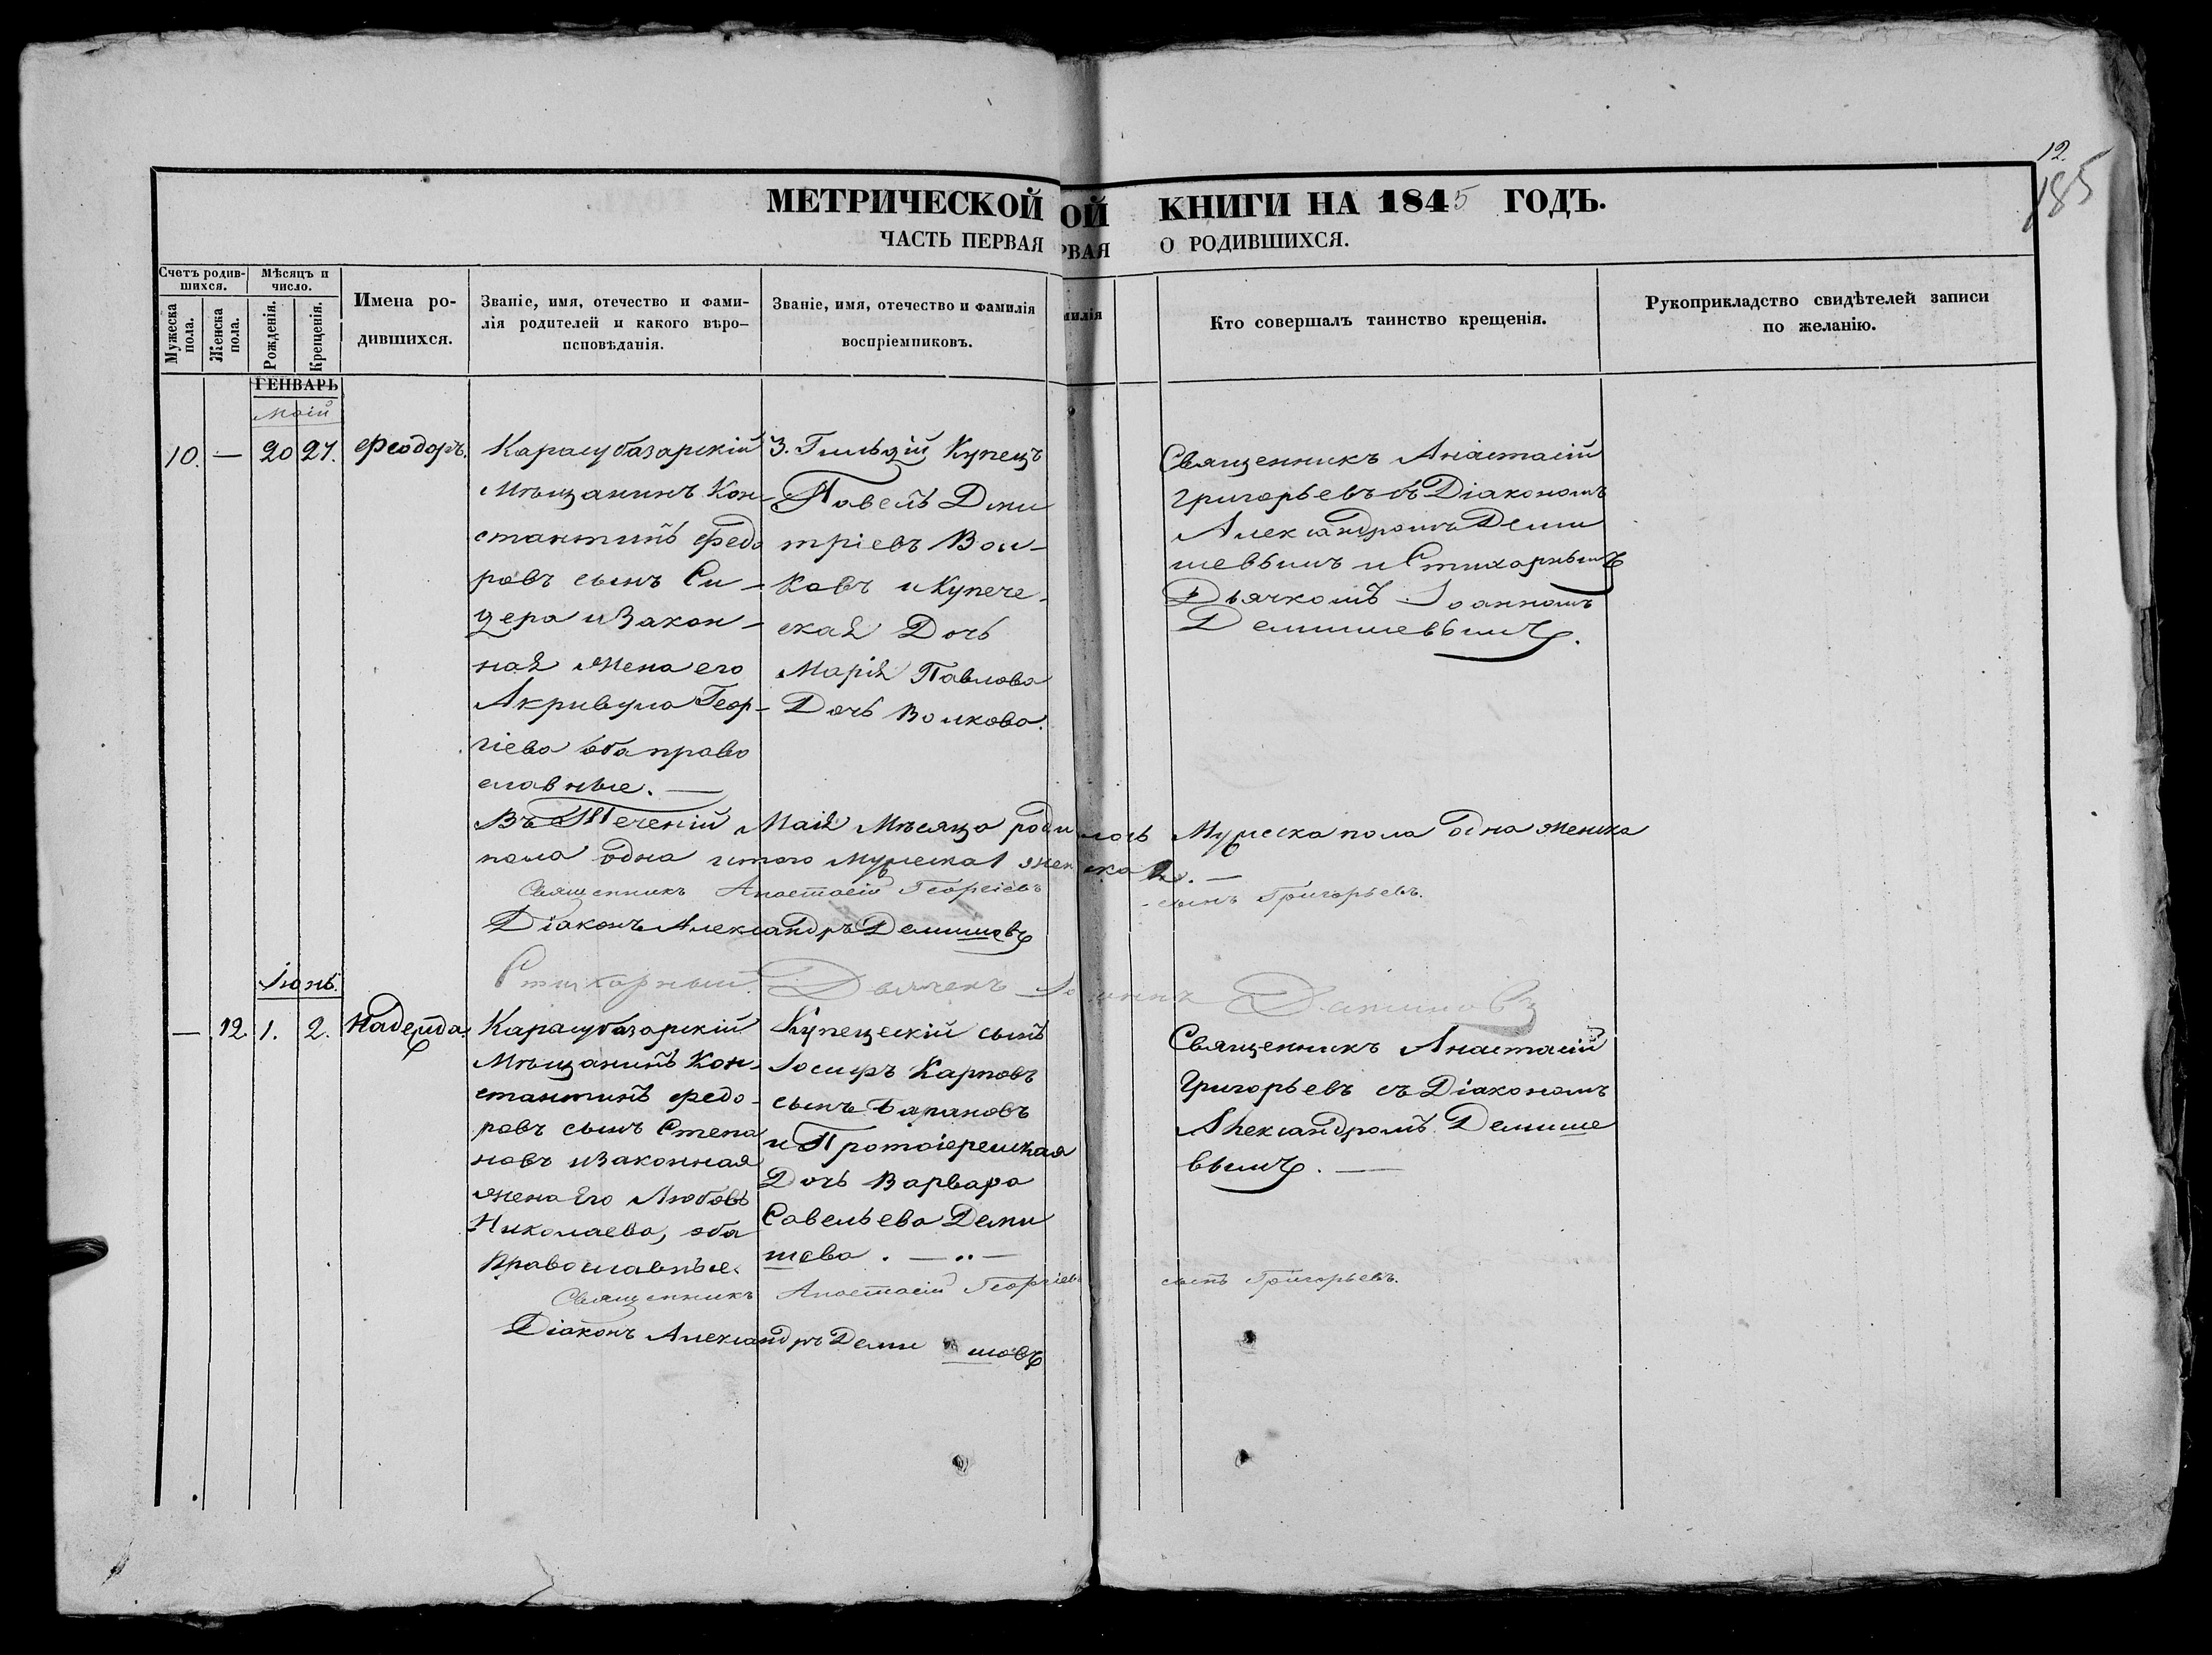 12.
185
МЕТРИЧЕСКОЙ
ОЙ КНИГИ НА 1845 ГОДЪ.
ЧАСТЬ ПЕРВАЯ
РВАЯ О РОДИВШИХСЯ.
Счетъ родив-
шихся.
Мужеска
пола.
Женска
пола.
Мѣсяцъ и
число.
Рожденія.
Крещенія.
Имена ро-
дившихся.
Званіе, имя, отечество и фами-
лія родителей и какого вѣро-
исповѣданія.
Званіе, имя, отечество и фамилія
воспріемниковъ.
милія
Кто совершалъ таинство крещенія.
Рукоприкладство свидѣтелей записи
по желанію.
ГЕНВАРЬ
Маій
10. — 20 27. Феодоръ.
Карасубазарскій
Мѣщанинъ Кон-
стантинъ Федо
ровъ сынъ Си-
цера и Закон-
ная жена его
Акривула Геор-
гіева оба право
славные. —
3. Гильдіи Купецъ
Павелъ Дми
тріевъ Вол-
ковъ и Купече-
ская Дочь
Марія Павлова
Дочь Волкова.
Священникъ Анастасій
Григорьевъ съ Діакономъ
Александромъ Деми
шевымъ и Стихарнымъ
Дьячкомъ Іоанномъ
Демишевымъ.
Въ Теченіи Маія Мѣсяца родилось Мужеска пола одна женска
пола одна итого мужеска 1 женска 2. —
Священникъ Анастасій Георгіевъ сынъ Григорьевъ.
Діаконъ Александръ Демишевъ
Стихарный Дьячекъ Іоаннъ
Іюнь.
— 12. 1. 2. Надежда.
Карасубазарскій
Мѣщанинъ Кон-
стантинъ Федо-
ровъ сынъ Степа
новъ и Законная
жена Его Любовь
Николаева, оба
Православные.
Купеческій сынъ
Іосифъ Карповъ
сынъ Барановъ
и Протоіерейская
Дочь Варвара
Савельева Деми
шева. — .. —
Священникъ Анастасій
Григорьевъ съ Діакономъ
Александромъ Демише
вымъ. —
Священникъ Анастасій Георгіевъ сынъ Григорьевъ.
Діаконъ Александръ Демишевъ